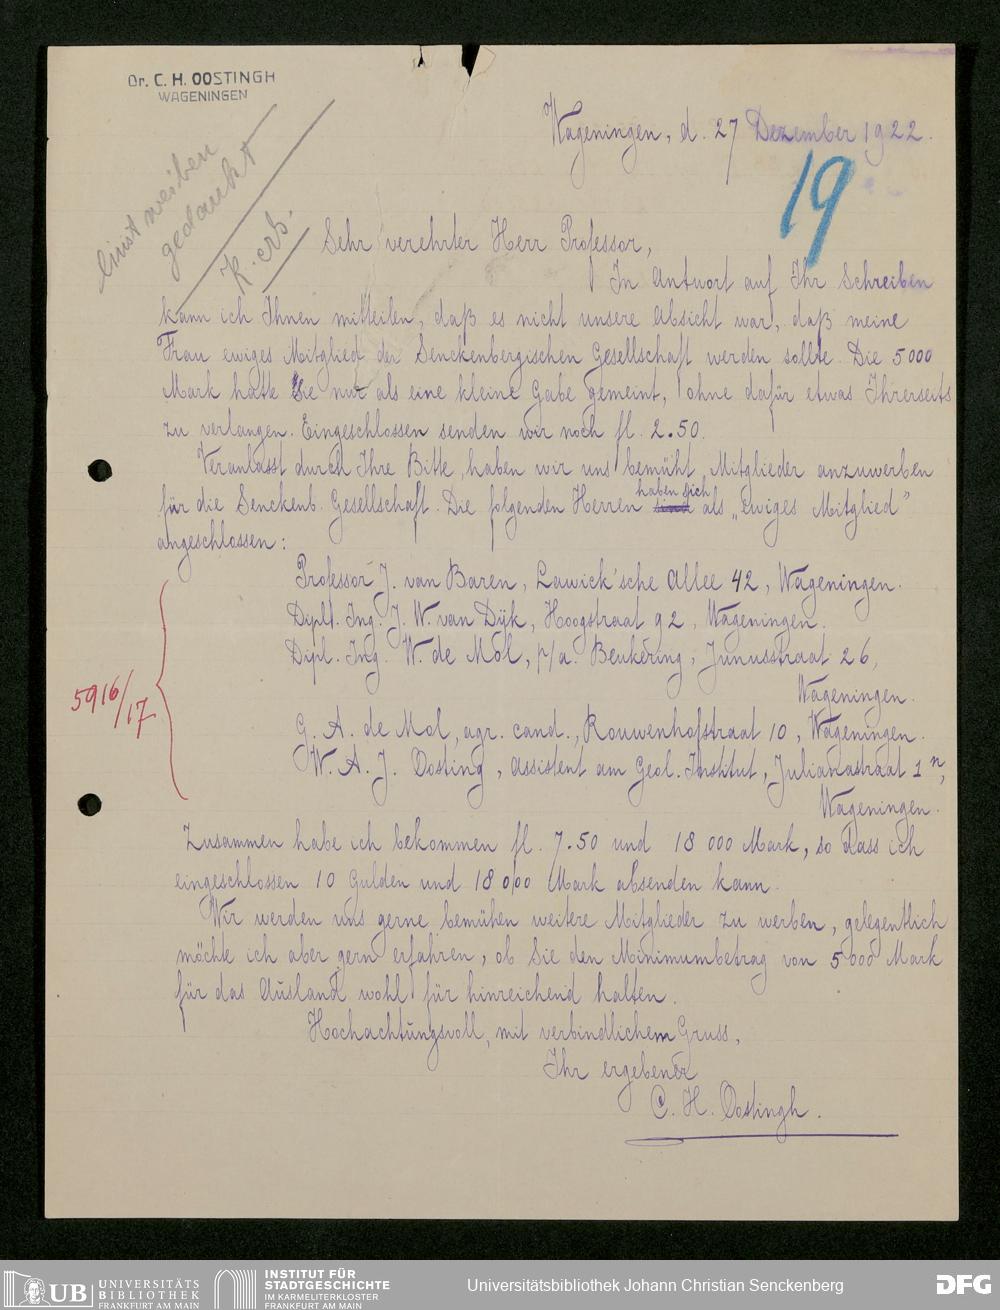 Dr. C. H. OOSTINGH
WAGENINGEN
Wageningen, d. 27 Dezember 1922.
19
gedankt
Sehr verehrter Herr Professor,
In Antwort auf Ihr Schreiben
kann ich Ihnen mitteilen, daß es nicht unsere Absicht war, daß meine
Frau ewiges Mitglied der Senckenbergischen Gesellschaft werden sollte. Die 5000
Mark hatte sie nur als eine kleine Gabe gemeint, ohne dafür etwas Ihrerseits
zu verlangen. Eingeschlossen senden wir noch fl. 2.50.
Veranlasst durch Ihre Bitte, haben wir uns bemüht, Mitglieder anzuwerben
für die Senckenb. Gesellschaft. Die folgenden Herren sind haben sich als „Ewiges Mitglied”
angeschlossen:
Professor J. van Baren, Lawick'sche Allee 42, Wageningen.
Dipl. Ing. J. W. van Dijk, Hoogstraat 92, Wageningen.
Dipl. Ing. W. de Mol, p/a. Beukering, Junusstraat 26,
Wageningen.
5916/17
G. A. de Mol, agr. cand., Rouwenhofstraat 10, Wageningen.
W. A. J. Oosting, Assistent am Geol. Institut, Julianastraat 1n,
Wageningen.
Zusammen habe ich bekommen fl. 7.50 und 18 000 Mark, so dass ich
eingeschlossen 10 Gulden und 18 000 Mark absenden kann.
Wir werden uns gerne bemühen weitere Mitglieder zu werben, gelegentlich
möchte ich aber gern erfahren, ob Sie den Moinimumbetrag von 5000 Mark
für das Ausland wohl für hinreichend halten.
Hochachtungsvoll, mit verbindlichem Gruss,
Ihr ergebener
C. H. Oostingh.
UB UNIVERSITÄTS
BIBLIOTHEK
FRANKFURT AM MAIN
INSTITUT FÜR
STADTGESCHICHTE
IM KARMELITERKLOSTER
FRANKFURT AM MAIN
Universitätsbibliothek Johann Christian Senckenberg
DFG